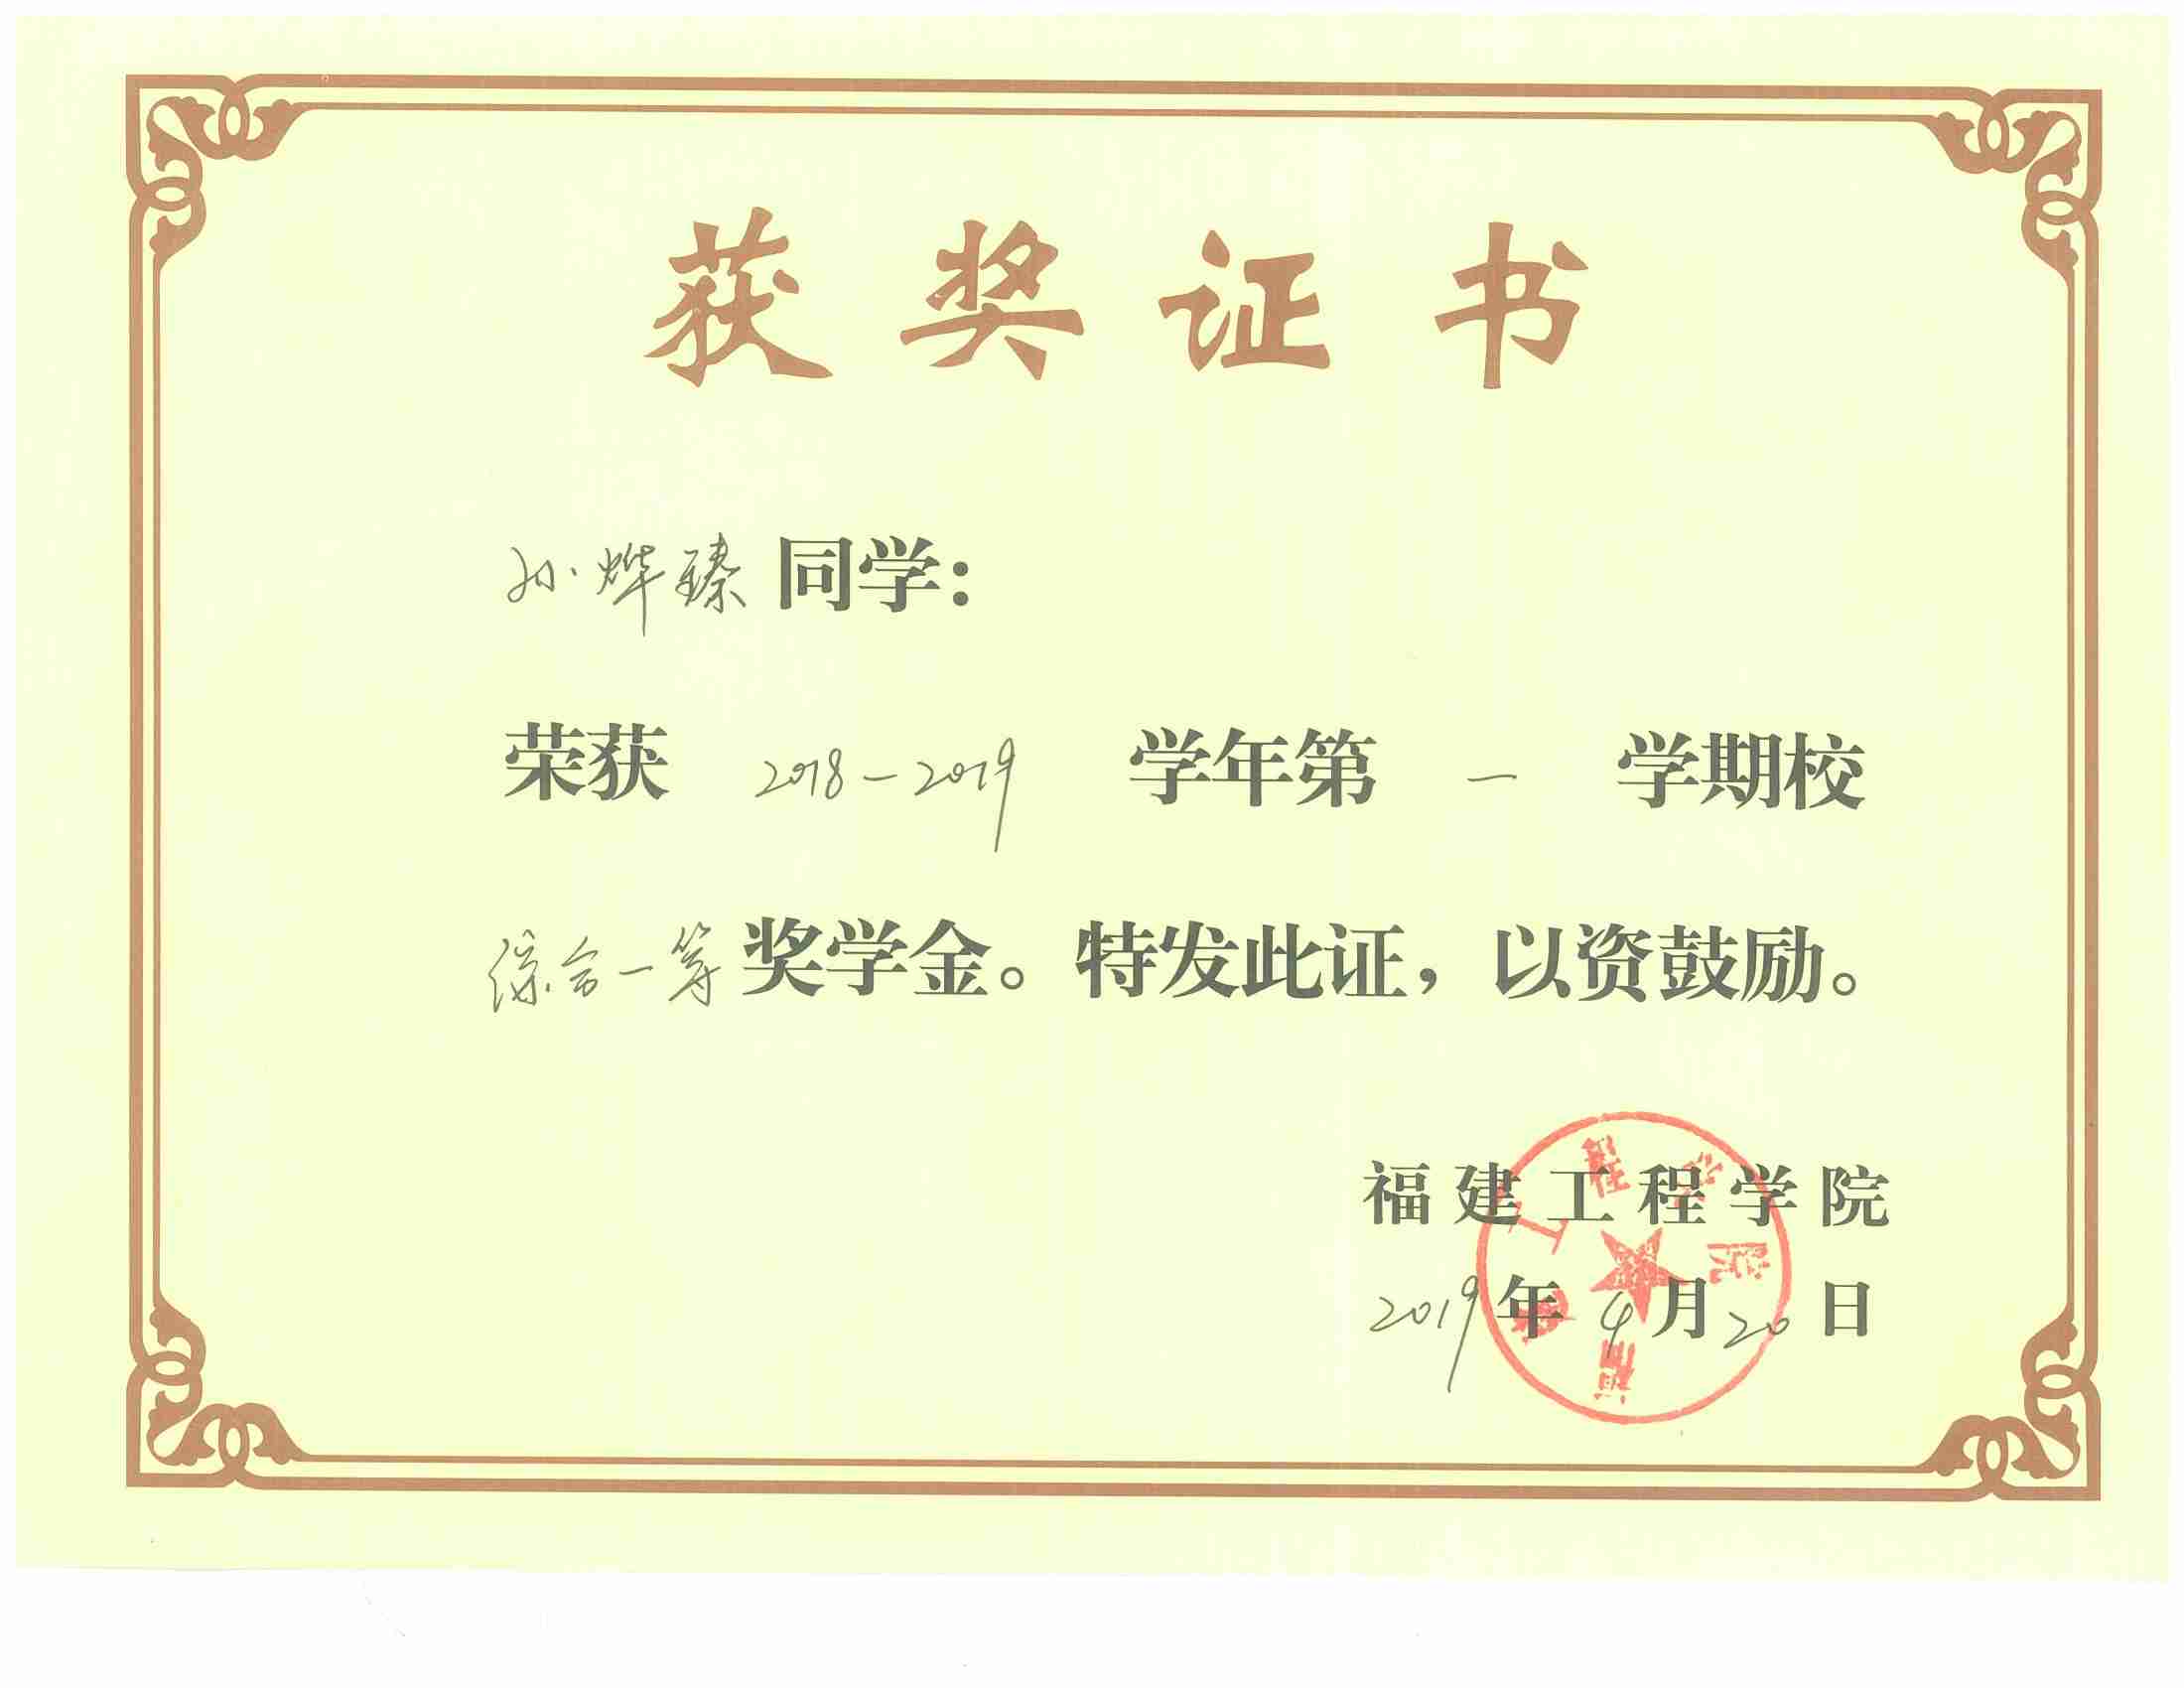 获奖证书
孙烨臻同学：
荣获 2018-2019 学年第 一 学期校
综合一等奖学金。特发此证，以资鼓励。
福建工程学院
2019年4月20日
福建工程学院